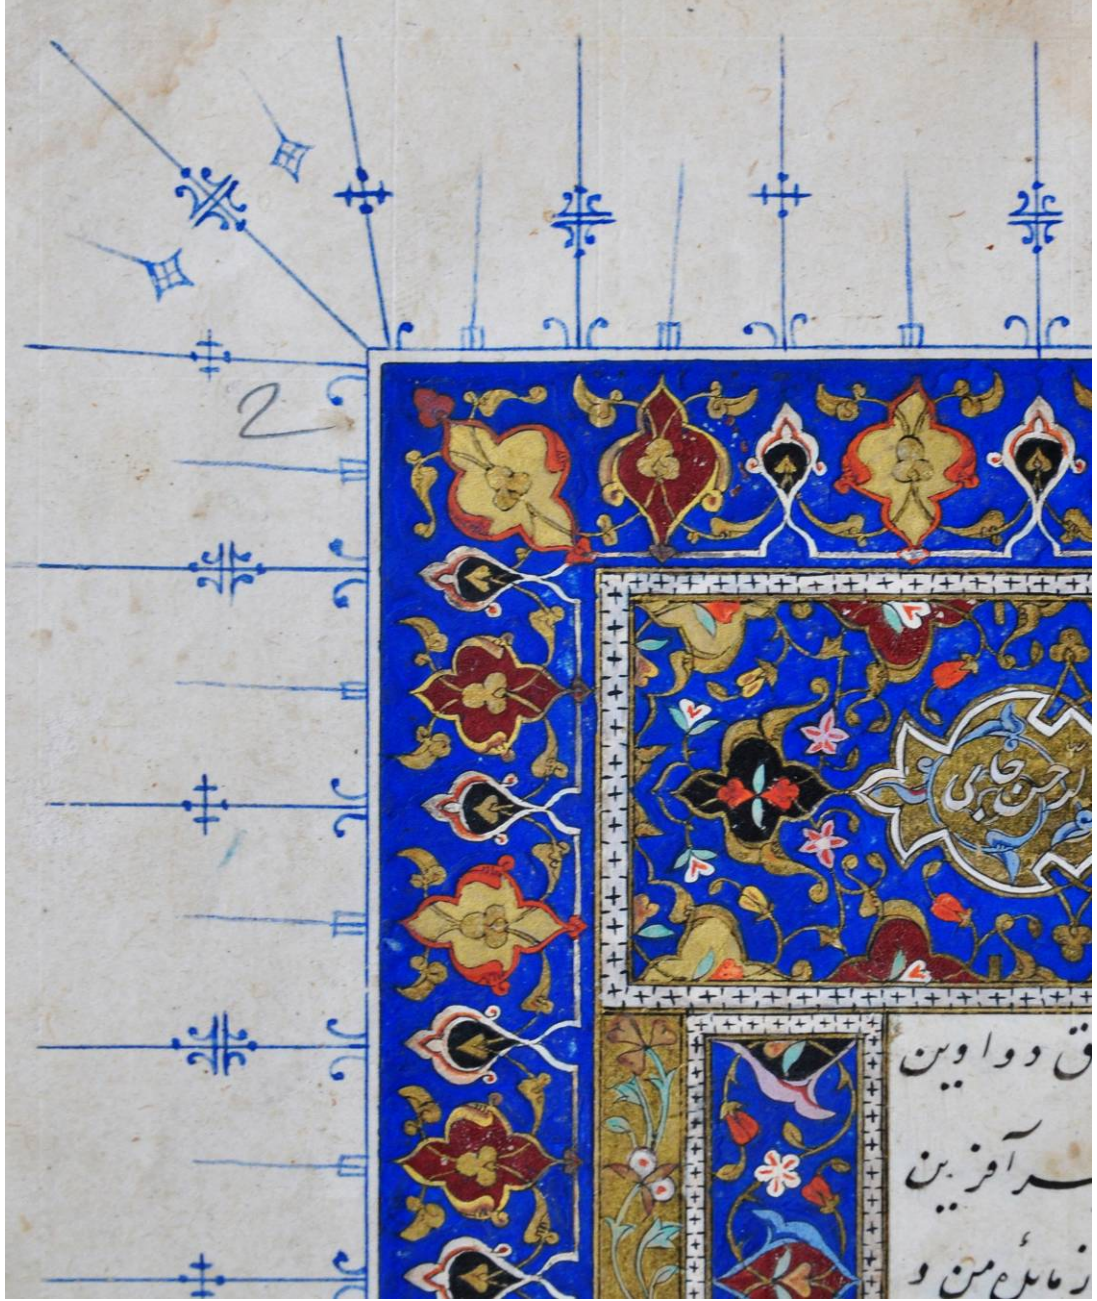 2
رحمن جامی
ق دواوین
ـر آفرین
ز مائدهٔ من و